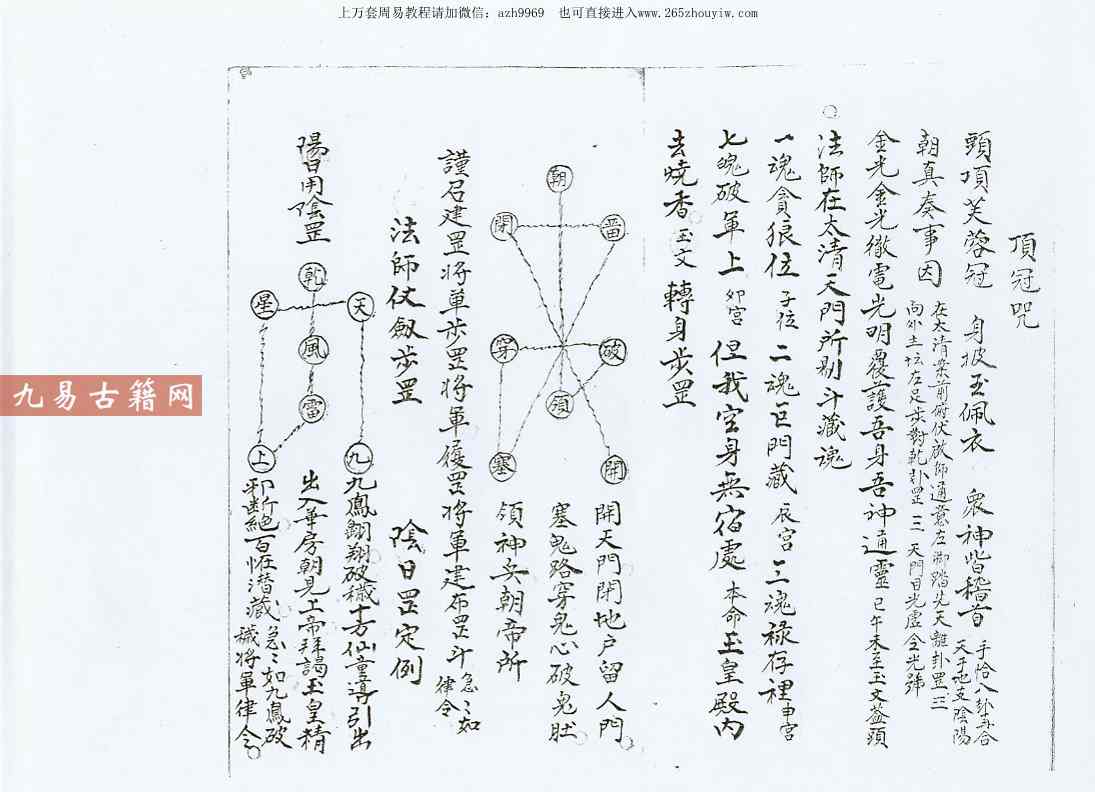 上万套周易教程请加微信：azh9969　也可直接进入www.265zhouyiw.com
頂冠咒
頭頂芙蓉冠　身披玉佩衣　衆神皆稽首　手恰八卦
天干地支陰陽
朝真奏事因　在太清案前俯伏啟師通意左脚踏先天離卦罡三
向外主坛左足步對乾卦罡三　天門日光虛全光號
金光金光徹電光明覆護吾身吾神通靈　巳午未至玉文盖頭
法師在太清天門所剔斗藏魂
一魂貪狼位　子位　二魂巨門藏　辰宮　三魂祿存裡　申宮
七魄破軍上　卯宮　但我空身無宿處　本命　玉皇殿內
去燒香　玉文　轉身步罡
朝
閉
畱
穿
破
領
塞
開
開天門閉地户留人門
塞鬼路穿鬼心破鬼肚
領神兵朝帝所
謹召建罡將軍步罡將軍履罡将軍建布罡斗　急〻如律令
法師仗劔步罡　陰日罡定例
陽日用陰罡
乾
星
天
風
雷
上
九
九鳳翺翔破穢十方仙童導引出
出入華房朝見上帝拜謁玉皇精
邪断絕百怪潛藏　急〻如九鳳破
穢將軍律令
九易古籍网